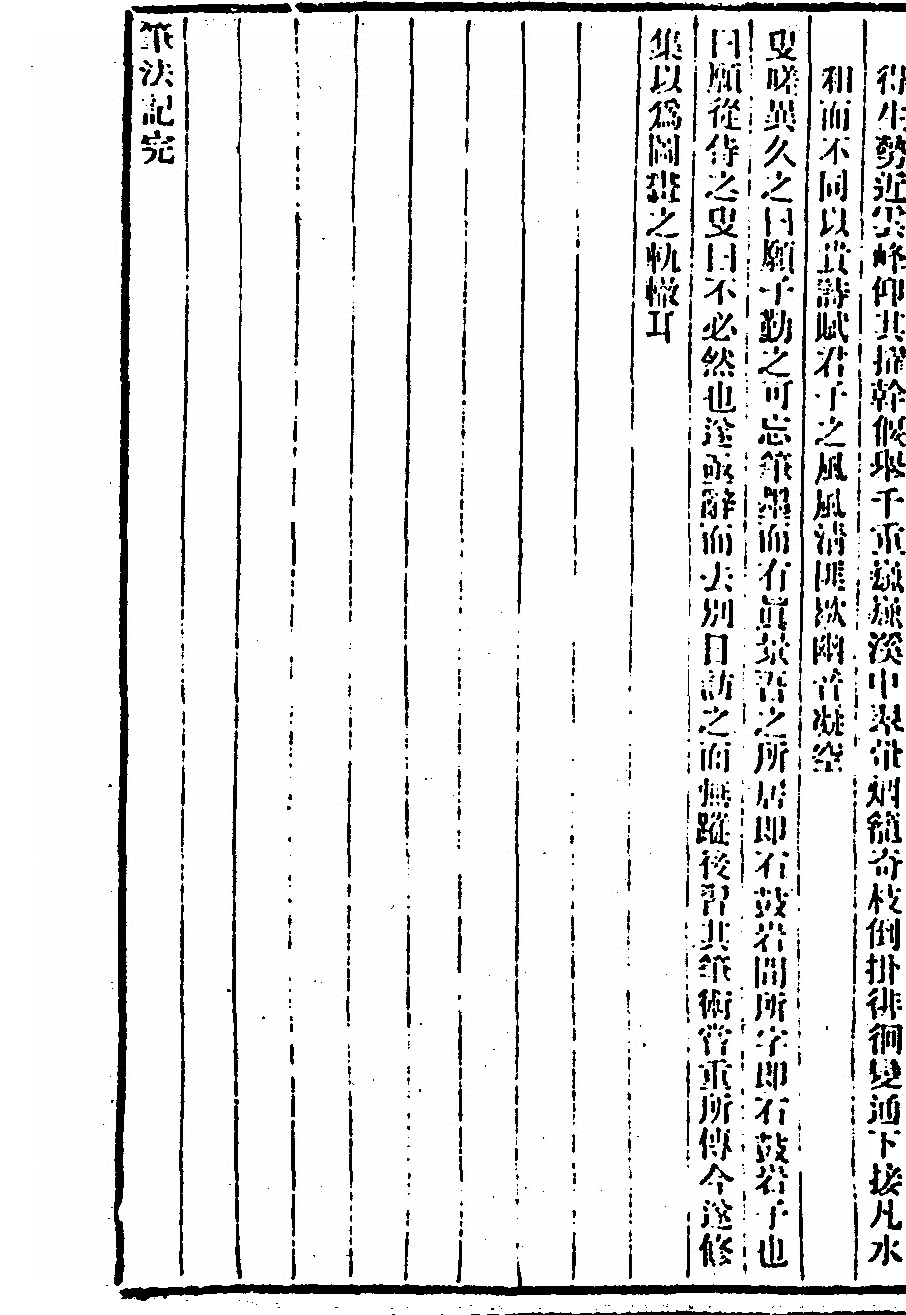 得生勢近雲峰仰其擢幹偃舉千重巍巍溪中翠暈烟籠奇枝倒掛徘徊變通下接凡水
和而不同以貴詩賦君子之風風清匪歇幽音凝空
叟嗟異久之曰願子勤之可忘筆墨而有眞景吾之所居卽石鼓岩間所字卽石鼓岩子也
曰願從侍之叟曰不必然也遂亟辭而去別日訪之而無蹤後習其筆術嘗重所傳今遂修
集以爲圖畫之軌轍耳
筆法記完